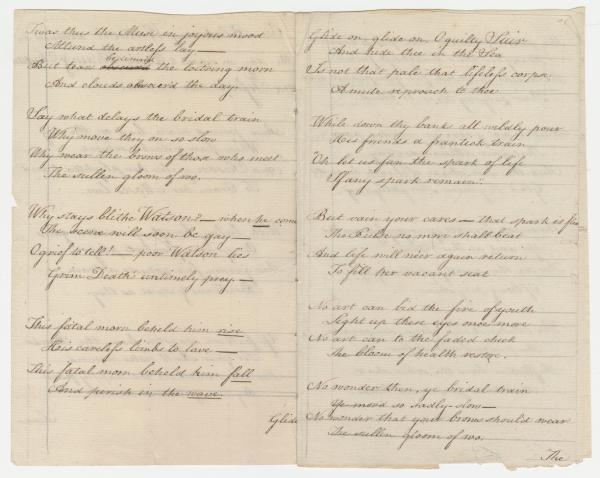 Twas thus the Muse in joyous mood
Attund the artless lay —
But tears bedimmd the loitring morn
And clouds obscur'd the day.
Say what delays the bridal train
Why move they on so slow
Why wear the brows of those who meet
The sullen gloom of wo.
Why stays blithe Watson? — when he come
The scene will soon be gay —
O grief to tell! — poor Watson lies
Grim Death's untimely prey —
This fatal morn beheld him rise
His careless limbs to lave —
This fatal morn beheld him fall
And perish in the wave.
Glide
Glide on, glide on, O guilty Suir
And hide thee in the Sea
Is not that pale that lifeless corpse
A mute reproach to thee
While down thy banks all wildly pour
His friends a frantick train
"Oh let us fan the spark of life
If any spark remain".
But vain your cares — that spark is
The Pulse no more shall beat
And life will neer again return
To fill her vacant seat
No art can bid the fire of youth
Light up these eyes once more
No art can to the faded cheek
The bloom of health restore.
No wonder then, ye bridal train
Ye mov'd so sadly slow —
No wonder that your brows should wear
The sullen gloom of wo.
The